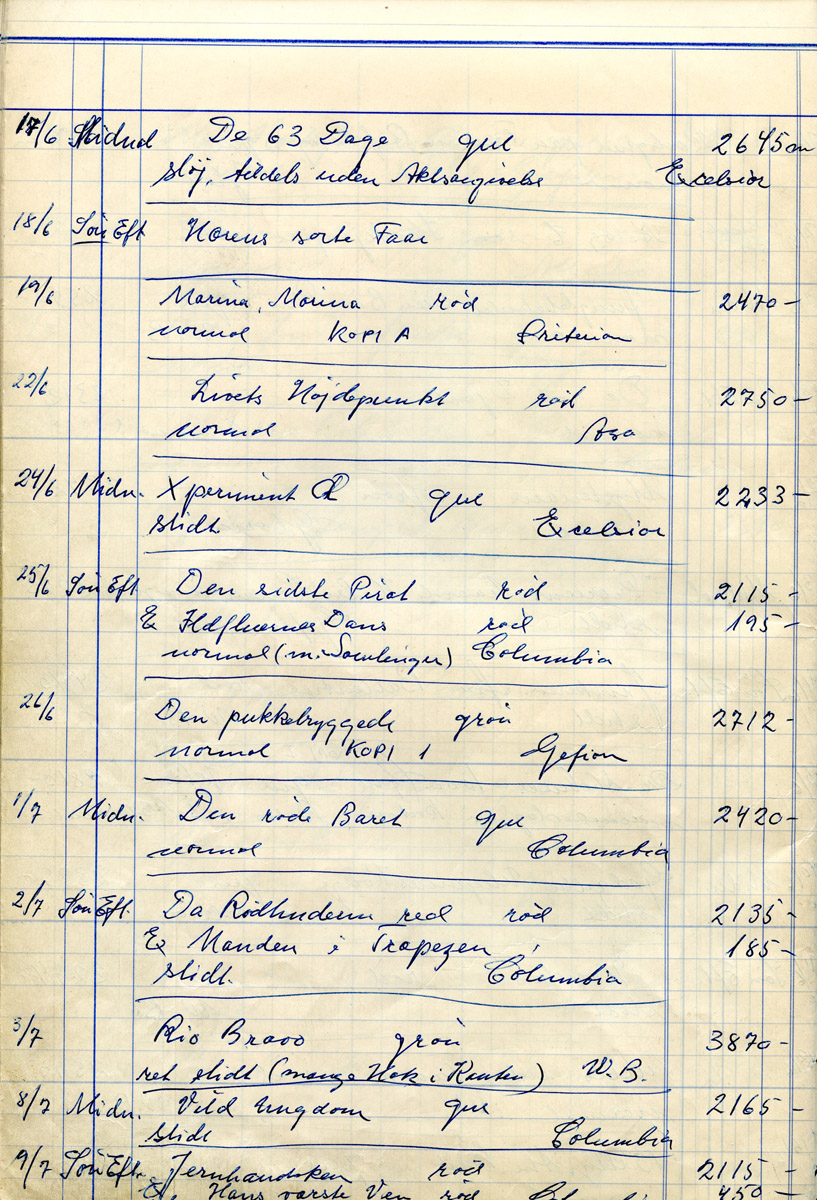 17/6 Midnd De 63 Dage gul 2645 m
sløj, tildels uden Aktsangivelse Excelsior
18/6 Søn Eft Hærens sorte Faar
19/6 Marina, Marina rød 2470-
normal KOPI A Criterion
22/6 Livets Højdepunkt rød 2750-
normal Asa
24/6 Midn. Xperiment gul 2233-
slidt Excelsior
25/6 Søn Eft Den sidste Pirat rød 2115-
& Ildfluernes Dans rød 195-
normal (m. Samlinger) Columbia
26/6 Den pukkelryggede grøn 2712-
normal KOPI 1 Gefion
1/7 Midn. Den røde Baret gul 2420-
normal Columbia
2/7 Søn Eft. Da Rødhuderne red rød 2135-
& Manden i Trapezen 185-
slidt. Columbia
3/7 Rio Bravo grøn 3870-
ret slidt (mange Hak i Kanten) W.B.
8/7 Midn. Vild Ungdom gul 2165-
slidt Columbia
9/7 Søn Eft. Jernhandsken rød 2115-
& Hans værste Ven rød 450-